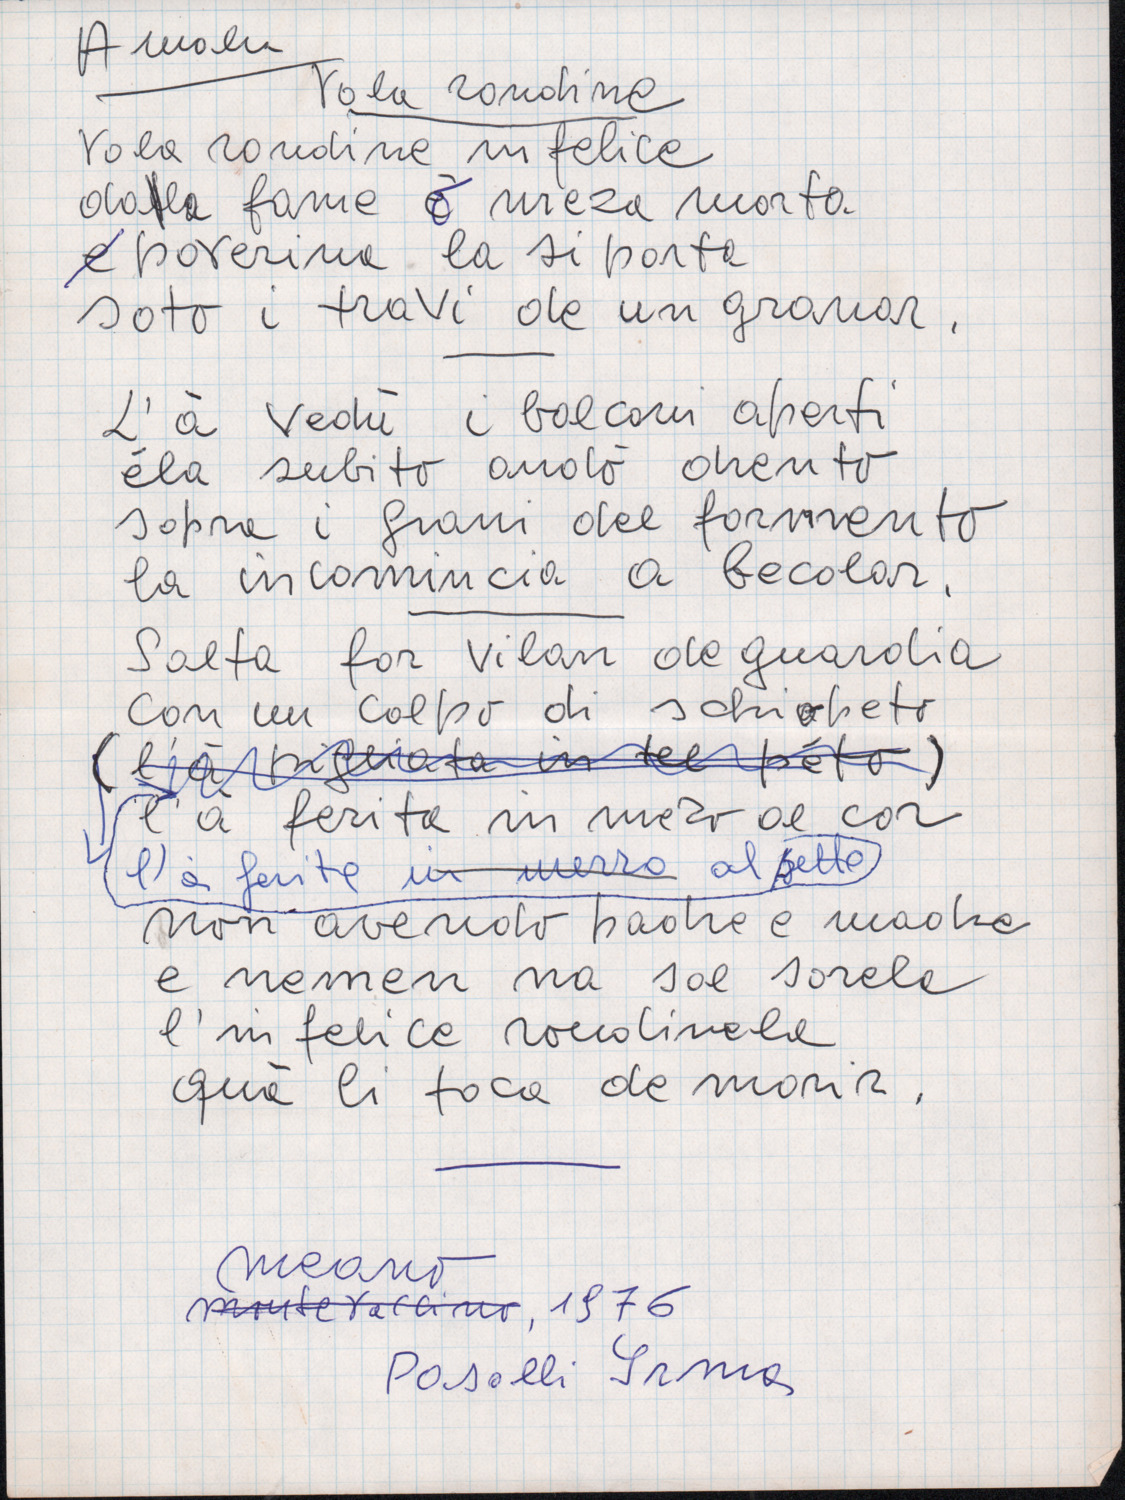 Vola rondine
Vola rondine infelice
dalla fame è meza morta
e poverina la si porta
soto i travi de un granar.
L'à vedù i balconi aperti
éla subito andò drento
sopra i grani del formento
la incomincia a becolar.
Salta for vilan de guardia
con un colpo di schiopeto
(l'à pigliata in tel péto)
l'à ferita in mezo al cor
l'à ferita in mezzo al petto
non avendo padre e madre
e nemen na sol sorela
l'infelice rondinela
quà li toca de morir.
meano
montevaccino, 1976
Pasolli Irma